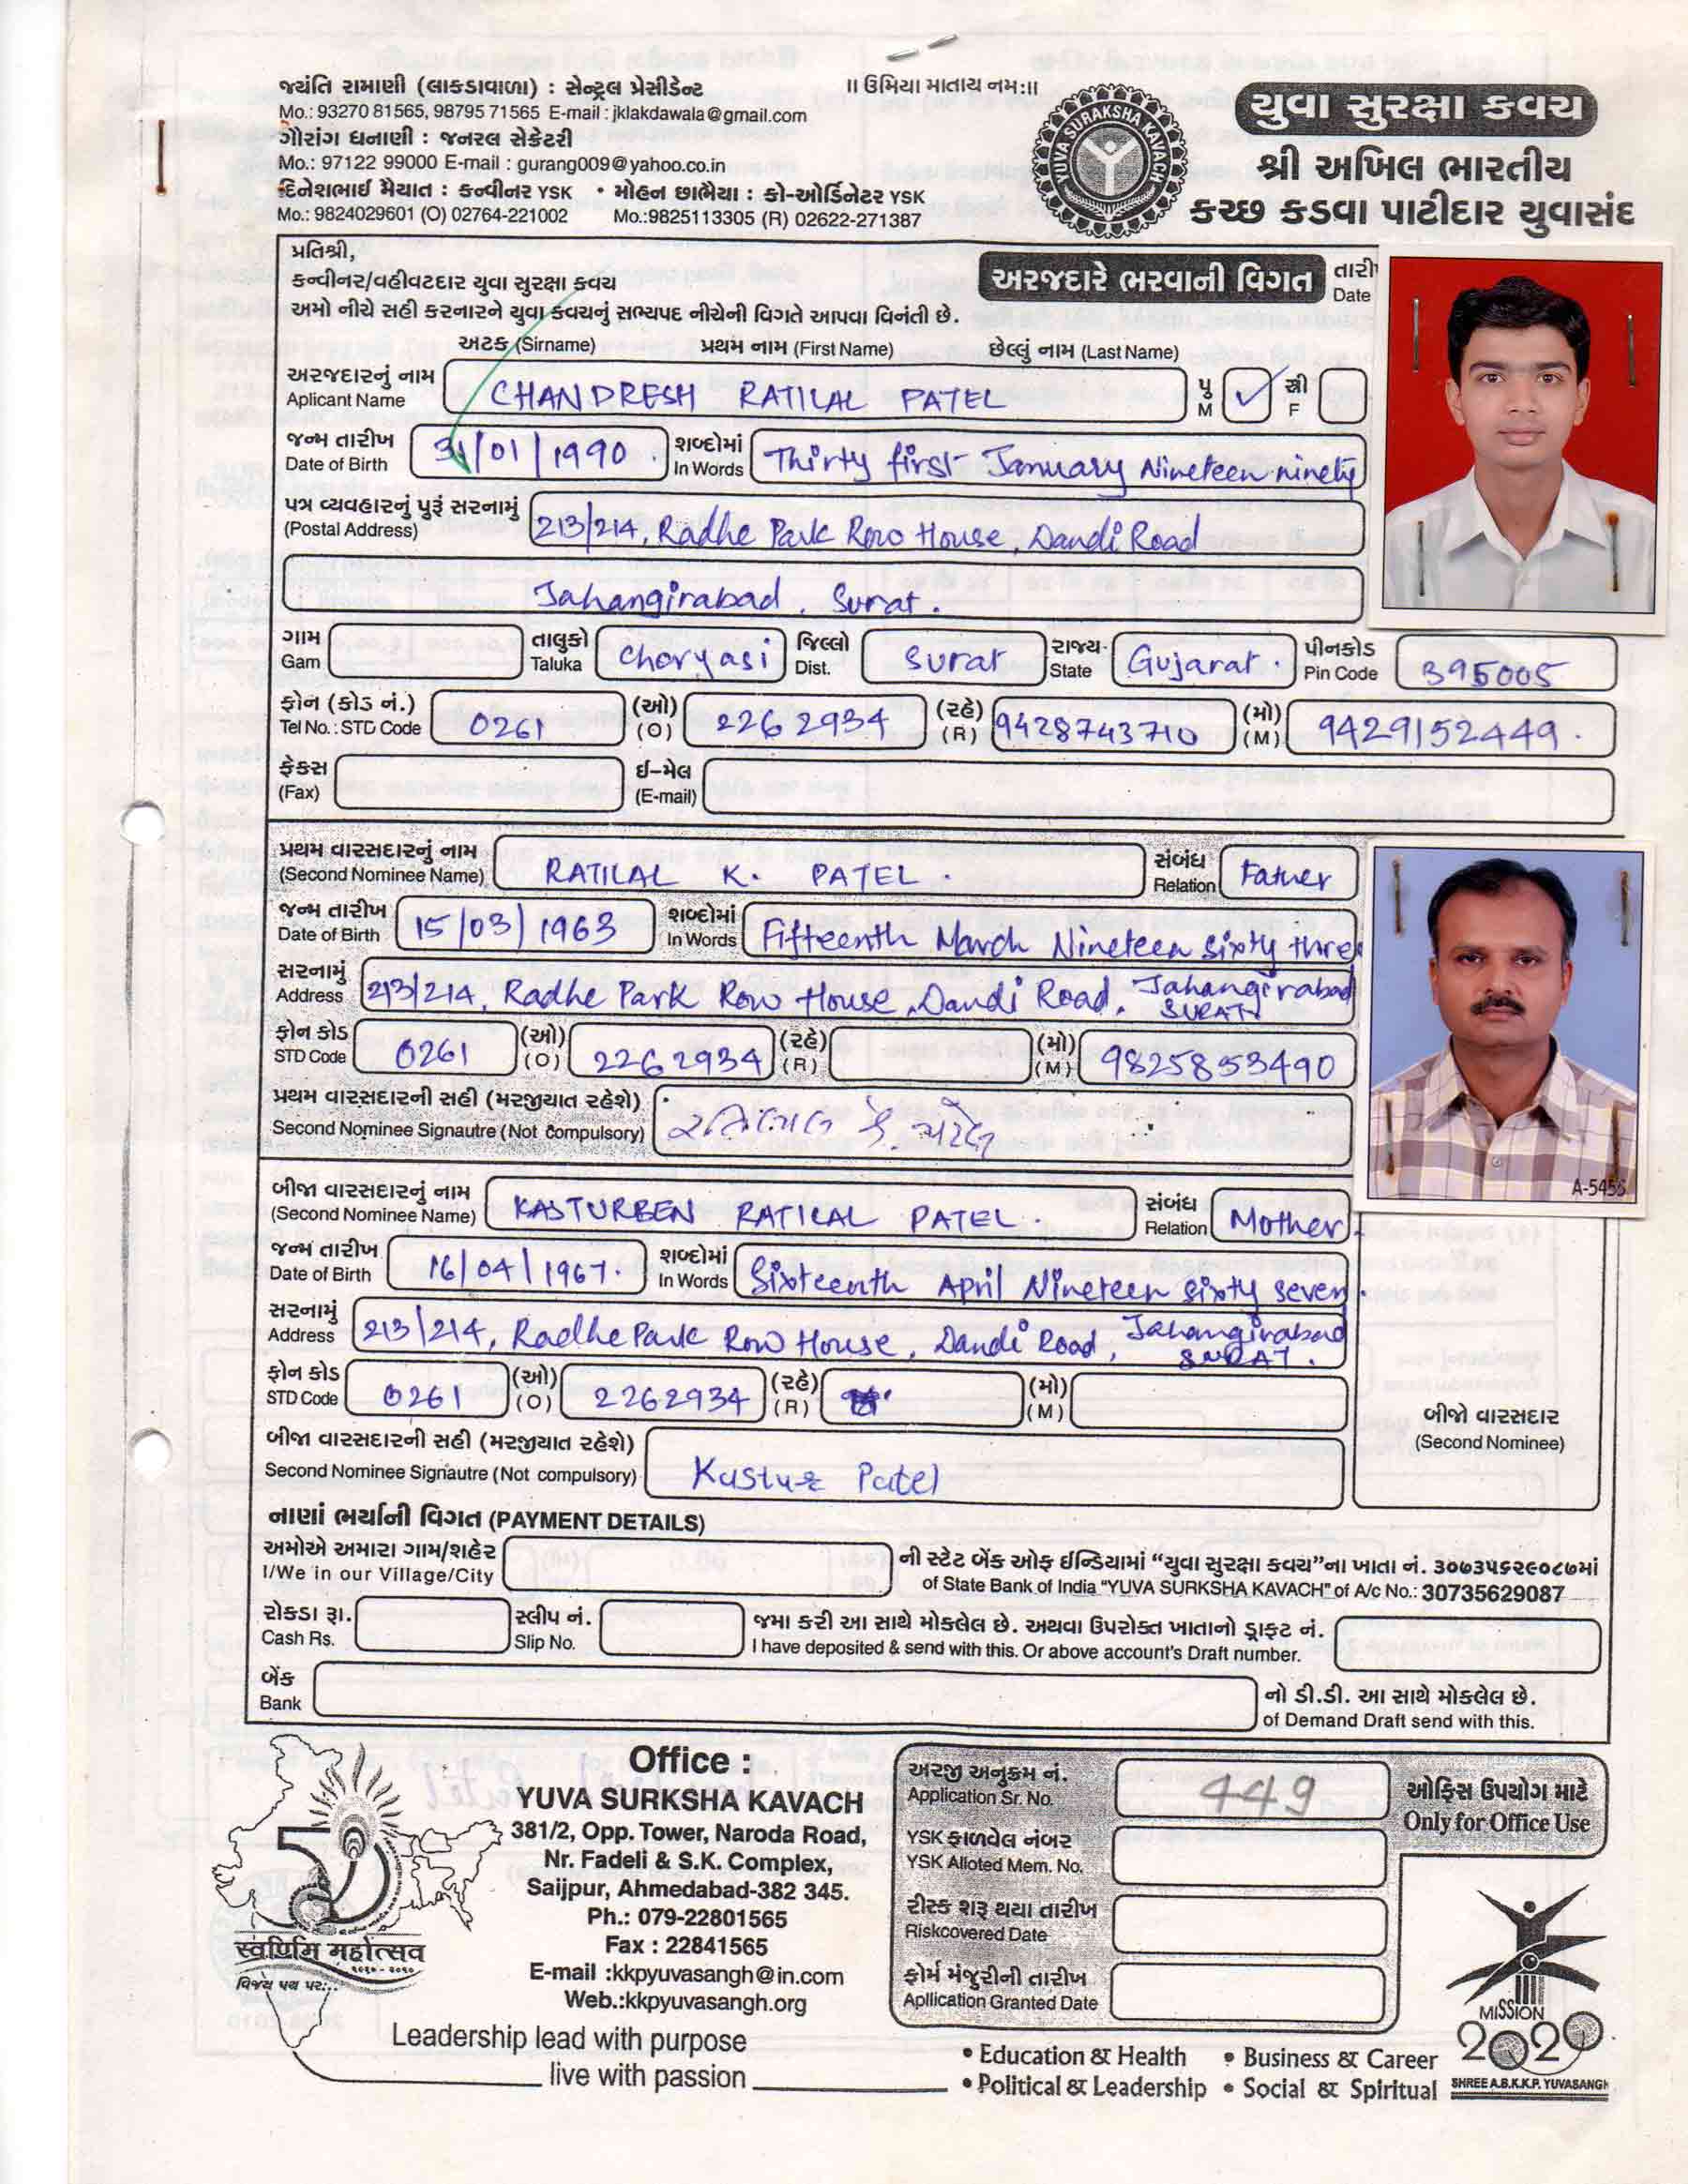 જયંતિ રામાણી (લાકડાવાળા) : સેન્ટ્રલ પ્રેસીડેન્ટ
Mo.: 93270 81565, 98795 71565 E-mail : jklakdawala@gmail.com
ગૌરાંગ ધનાણી : જનરલ સેક્રેટરી
Mo.: 97122 99000 E-mail : gurang009@yahoo.co.in
દિનેશભાઈ મૈયાત : કન્વીનર YSK • મોહન છાભૈયા : કો-ઓર્ડિનેટર YSK
Mo.: 9824029601 (O) 02764-221002 Mo.:9825113305 (R) 02622-271387
॥ ઉમિયા માતાય નમઃ॥
YUVA SURAKSHA KAVACH
યુવા સુરક્ષા કવચ
શ્રી અખિલ ભારતીય
કચ્છ કડવા પાટીદાર યુવાસંઘ
પ્રતિશ્રી,
કન્વીનર/વહીવટદાર યુવા સુરક્ષા કવચ
અમો નીચે સહી કરનારને યુવા કવચનું સભ્યપદ નીચેની વિગતે આપવા વિનંતી છે.
અરજદારે ભરવાની વિગત
તારી
Date
અટક (Sirname) પ્રથમ નામ (First Name) છેલ્લું નામ (Last Name)
અરજદારનું નામ
Aplicant Name CHANDRESH RATILAL PATEL પુ M ✓ સ્ત્રી F
જન્મ તારીખ
Date of Birth 31/01/1990 . શબ્દોમાં In Words Thirty first January Nineteen ninety
પત્ર વ્યવહારનું પુરૂં સરનામું
(Postal Address) 213/214, Radhe Park Row House, Dandi Road
Jahangirabad , Surat .
ગામ Gam તાલુકો Taluka Choryasi જિલ્લો Dist. Surat રાજ્ય State Gujarat . પીનકોડ Pin Code 395005
ફોન (કોડ નં.)
Tel No.: STD Code 0261 (ઓ) (O) 2262934 (રહે) (R) 9428743710 (મો) (M) 9429152449 .
ફેક્સ (Fax) ઈ-મેલ (E-mail)
પ્રથમ વારસદારનું નામ
(Second Nominee Name) RATILAL K. PATEL . સંબંધ Relation Father
જન્મ તારીખ
Date of Birth 15/03/1963 શબ્દોમાં In Words Fifteenth March Nineteen sixty three
સરનામું
Address 213/214, Radhe Park Row House, Dandi Road, Jahangirabad SURAT
ફોન કોડ
STD Code 0261 (ઓ) (O) 2262934 (રહે) (R) (મો) (M) 9825853490
પ્રથમ વારસદારની સહી (મરજીયાત રહેશે)
Second Nominee Signautre (Not compulsory) રતિલાલ કે. પટેલ
A-5456
બીજા વારસદારનું નામ
(Second Nominee Name) KASTURBEN RATILAL PATEL . સંબંધ Relation Mother .
જન્મ તારીખ
Date of Birth 16/04/1967. શબ્દોમાં In Words Sixteenth April Nineteen sixty seven.
સરનામું
Address 213/214, Radhe Park Row House, Dandi Road, Jahangirabad SURAT.
ફોન કોડ
STD Code 0261 (ઓ) (O) 2262934 (રહે) (R) (મો) (M)
બીજો વારસદાર
(Second Nominee)
બીજા વારસદારની સહી (મરજીયાત રહેશે)
Second Nominee Signautre (Not compulsory) Kastur Patel
નાણાં ભર્યાની વિગત (PAYMENT DETAILS)
અમોએ અમારા ગામ/શહેર ની સ્ટેટ બેંક ઓફ ઈન્ડિયામાં “યુવા સુરક્ષા કવચ”ના ખાતા નં. ૩૦૭૩૫૬૨૯૦૮૭માં
I/We in our Village/City of State Bank of India "YUVA SURKSHA KAVACH" of A/c No.: 30735629087
રોકડા રૂા. સ્લીપ નં. જમા કરી આ સાથે મોકલેલ છે. અથવા ઉપરોક્ત ખાતાનો ડ્રાફ્ટ નં.
Cash Rs. Slip No. I have deposited & send with this. Or above account's Draft number.
બેંક નો ડી.ડી. આ સાથે મોકલેલ છે.
Bank of Demand Draft send with this.
Office :
YUVA SURKSHA KAVACH
381/2, Opp. Tower, Naroda Road,
Nr. Fadeli & S.K. Complex,
Saijpur, Ahmedabad-382 345.
Ph.: 079-22801565
Fax : 22841565
E-mail :kkpyuvasangh@in.com
Web.:kkpyuvasangh.org
स्वर्णिम महोत्सव
વિજય પથ પર...
Leadership lead with purpose
live with passion
અરજી અનુક્રમ નં.
Application Sr. No. 449
ઓફિસ ઉપયોગ માટે
Only for Office Use
YSK ફાળવેલ નંબર
YSK Alloted Mem. No.
રીસ્ક શરૂ થયા તારીખ
Riskcovered Date
ફોર્મ મંજુરીની તારીખ
Apllication Granted Date
• Education & Health • Business & Career
• Political & Leadership • Social & Spiritual
MISSION
2020
SHREE A.B.K.K.P. YUVASANGH